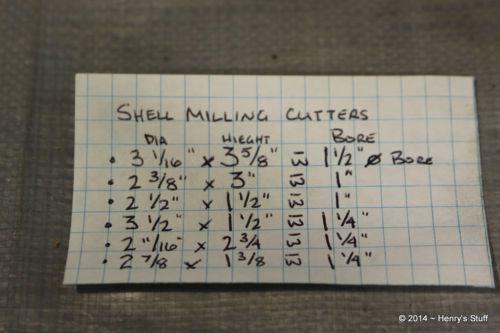 SHELL MILLING CUTTERS
DIA HIEGHT BORE
• 3 1/16" x 3 5/8" 13 1 1/2" Ø BORE
• 2 3/8" x 3" 13 1"
• 2 1/2" x 1 1/2" 13 1"
• 3 1/2" x 1 1/2" 13 1 1/4"
• 2 11/16 x 2 3/4 13 1 1/4"
• 2 7/8 x 1 3/8 13 1 1/4"
© 2014 ~ Henry's Stuff